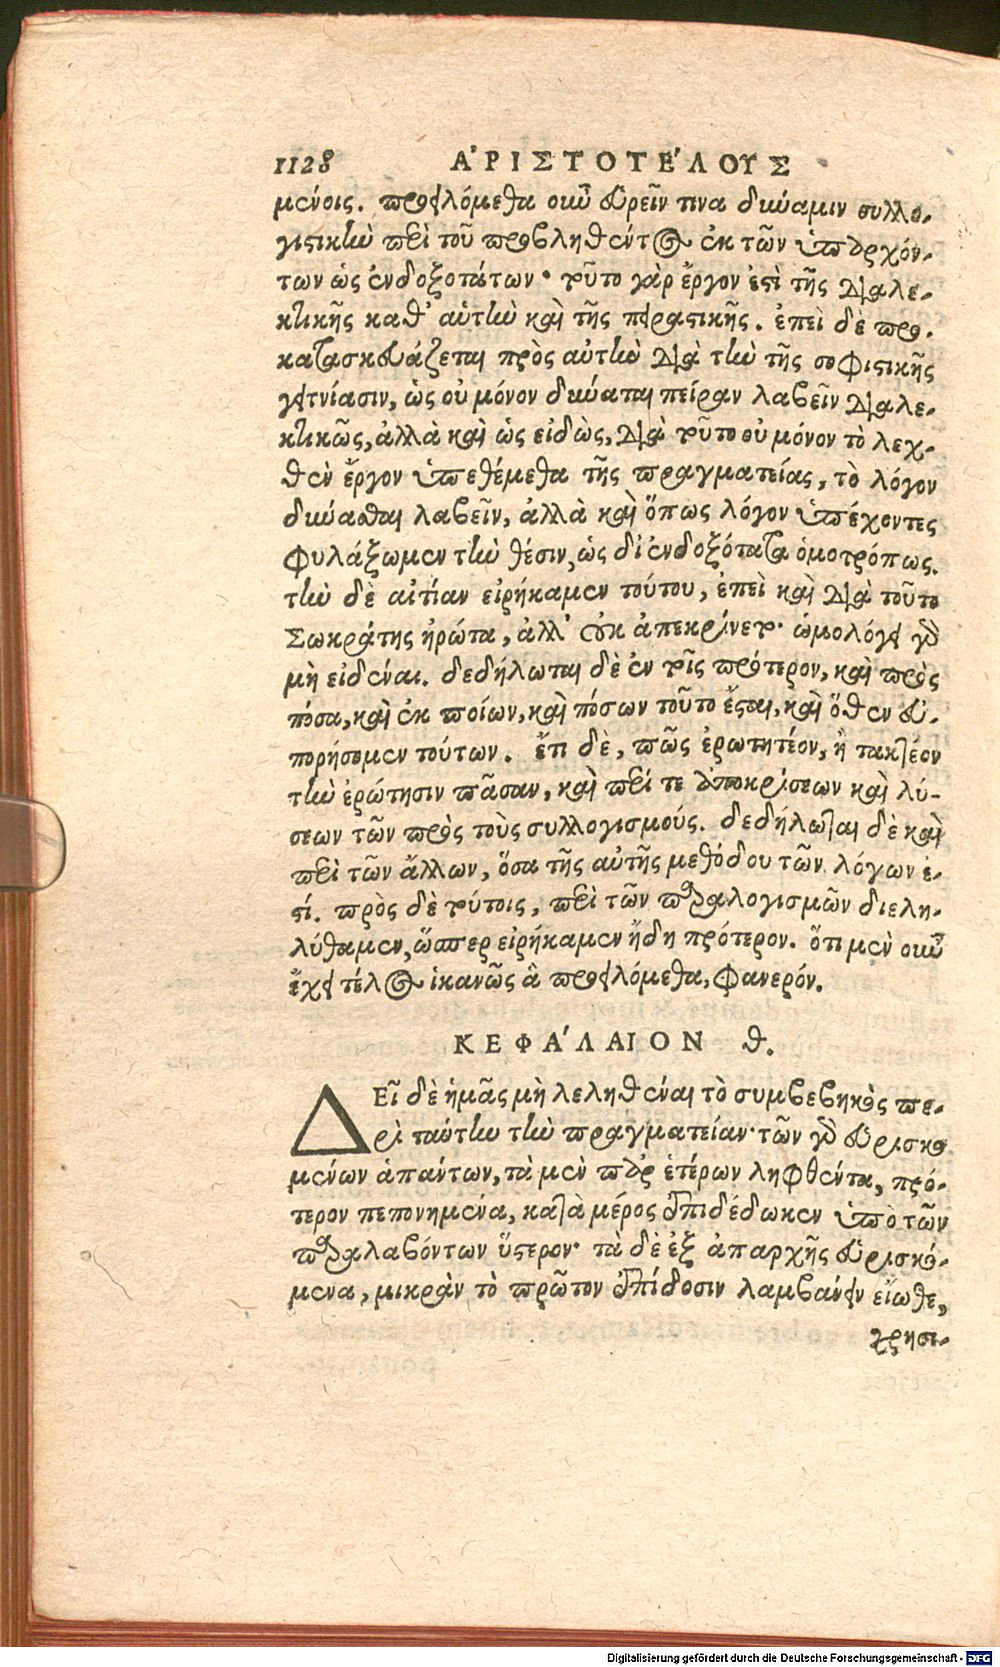 1128 ἈΡΙΣΤΟΤΈΛΟΥΣ
μένοις. προειλόμεθα οὖν εὑρεῖν τινα δύναμιν συλλο-
γιστικὴν περὶ τοῦ προβληθέντος ἐκ τῶν ὑπαρχόν-
των ὡς ἐνδοξοτάτων· τοῦτο γὰρ ἔργον ἐστὶ τῆς διαλε-
κτικῆς καθ' αὑτὴν καὶ τῆς πειραστικῆς. ἐπεὶ δὲ προ-
κατασκευάζεται πρὸς αὐτὴν διὰ τὴν τῆς σοφιστικῆς
γειτνίασιν, ὡς οὐ μόνον δύναται πείραν λαβεῖν διαλε-
κτικῶς, ἀλλὰ καὶ ὡς εἰδὼς, διὰ τοῦτο οὐ μόνον τὸ λεχ-
θὲν ἔργον ὑπεθέμεθα τῆς πραγματείας, τὸ λόγον
δύνασθαι λαβεῖν, ἀλλὰ καὶ ὅπως λόγον ὑπέχοντες
φυλάξωμεν τὴν θέσιν, ὡς δι' ἐνδοξότατα ὁμοτρόπως.
τὴν δὲ αἰτίαν εἰρήκαμεν τούτου, ἐπεὶ καὶ διὰ τοῦτο
Σωκράτης ἠρώτα, ἀλλ' οὐκ ἀπεκρίνετο· ὡμολόγει γὰρ
μὴ εἰδέναι. δεδήλωται δὲ ἐν τοῖς πρότερον, καὶ πρὸς
πόσα, καὶ ἐκ ποίων, καὶ πόσων τοῦτο ἔσται, καὶ ὅθεν εὐ-
πορήσομεν τούτων. ἔτι δὲ, πῶς ἐρωτητέον, ἢ τακτέον
τὴν ἐρώτησιν πᾶσαν, καὶ περί τε ἀποκρίσεων καὶ λύ-
σεων τῶν πρὸς τοὺς συλλογισμούς. δεδήλωται δὲ καὶ
περὶ τῶν ἄλλων, ὅσα τῆς αὐτῆς μεθόδου τῶν λόγων ἐ-
στί. πρὸς δὲ τούτοις, περὶ τῶν παραλογισμῶν διελη-
λύθαμεν, ὥσπερ εἰρήκαμεν ἤδη πρότερον. ὅτι μὲν οὖν
ἔχει τέλος ἱκανῶς ἃ προειλόμεθα, φανερόν.
ΚΕΦΆΛΑΙΟΝ θ.
ΔΕῖ δὲ ἡμᾶς μὴ λεληθέναι τὸ συμβεβηκὸς πε-
ρὶ ταύτην τὴν πραγματείαν· τῶν γὰρ εὑρισκο
μένων ἁπάντων, τὰ μὲν παρ' ἑτέρων ληφθέντα, πρό-
τερον πεπονημένα, κατὰ μέρος ἐπιδέδωκεν ὑπὸ τῶν
παραλαβόντων ὕστερον· τὰ δὲ ἐξ ἀπαρχῆς εὑρισκό-
μενα, μικρὰν τὸ πρῶτον ἐπίδοσιν λαμβάνειν εἴωθε,
χρησι-
Digitalisierung gefördert durch die Deutsche Forschungsgemeinschaft - DFG